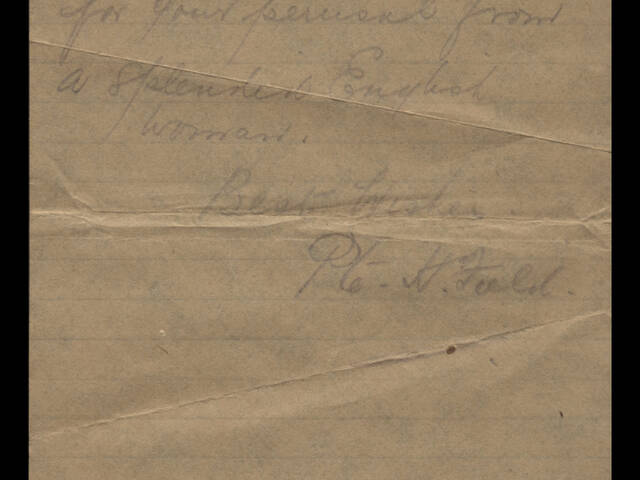 for your perusal from
a splendid English
woman.
Best Wishes.
Pte. H. Field.